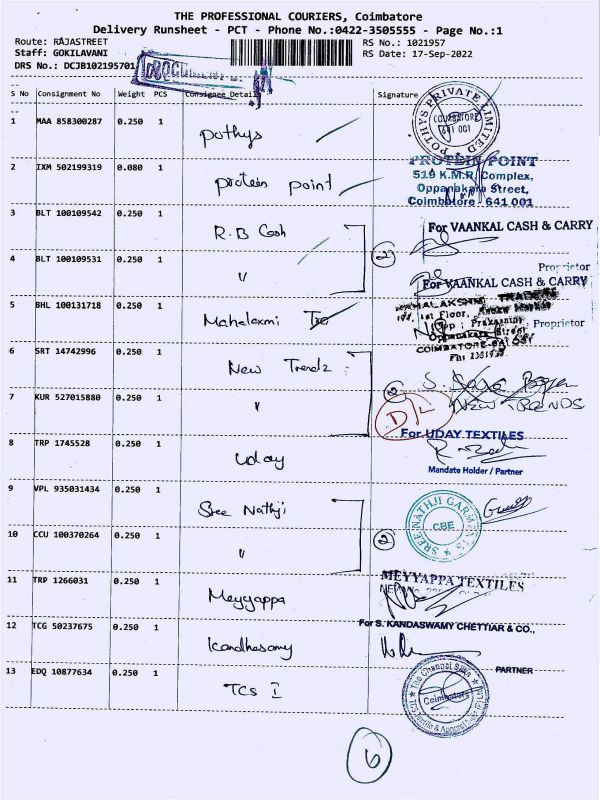 THE PROFESSIONAL COURIERS, Coimbatore
Delivery Runsheet - PCT - Phone No.:0422-3505555 - Page No.:1
Route: RAJASTREET
RS No.: 1021957
Staff: GOKILAVANI
RS Date: 17-Sep-2022
DRS No.: DCJB102195701
S No Consignment No Weight PCS Consignee Details Signature
1 MAA 858300287 0.250 1 Pothys
POTHYS PRIVATE LIMITED COIMBATORE 641 001
2 IXM 502199319 0.080 1 protein point
PROTEIN POINT
519 K.M.R. Complex,
Oppanakara Street,
Coimbatore - 641 001
3 BLT 100109542 0.250 1 R.B Cash
For VAANKAL CASH & CARRY
Proprietor
4 BLT 100109531 0.250 1 "
2
For VAANKAL CASH & CARRY
Proprietor
5 BHL 100131718 0.250 1 Mahalaxmi Tre
MAHALAKSHMI TRADERS
1st Floor,
Opp : Prakasam
Oppanakara Street
COIMBATORE-641 001
6 SRT 14742996 0.250 1 New Trendz
7 KUR 527015880 0.250 1 "
2
D/L
NEW TRENDS
8 TRP 1745528 0.250 1 Uday
For UDAY TEXTILES
Mandate Holder / Partner
9 VPL 935031434 0.250 1 Sree Nathji
SREE NATHJI GARMENTS CBE
10 CCU 100370264 0.250 1 "
2
11 TRP 1266031 0.250 1 Meyyappa
MEYYAPPA TEXTILES
12 TCG 50237675 0.250 1 Kandhasamy
For S. KANDASWAMY CHETTIAR & CO.,
PARTNER
13 EDQ 10877634 0.250 1 TCS I
The Chennai Silks Coimbatore
6